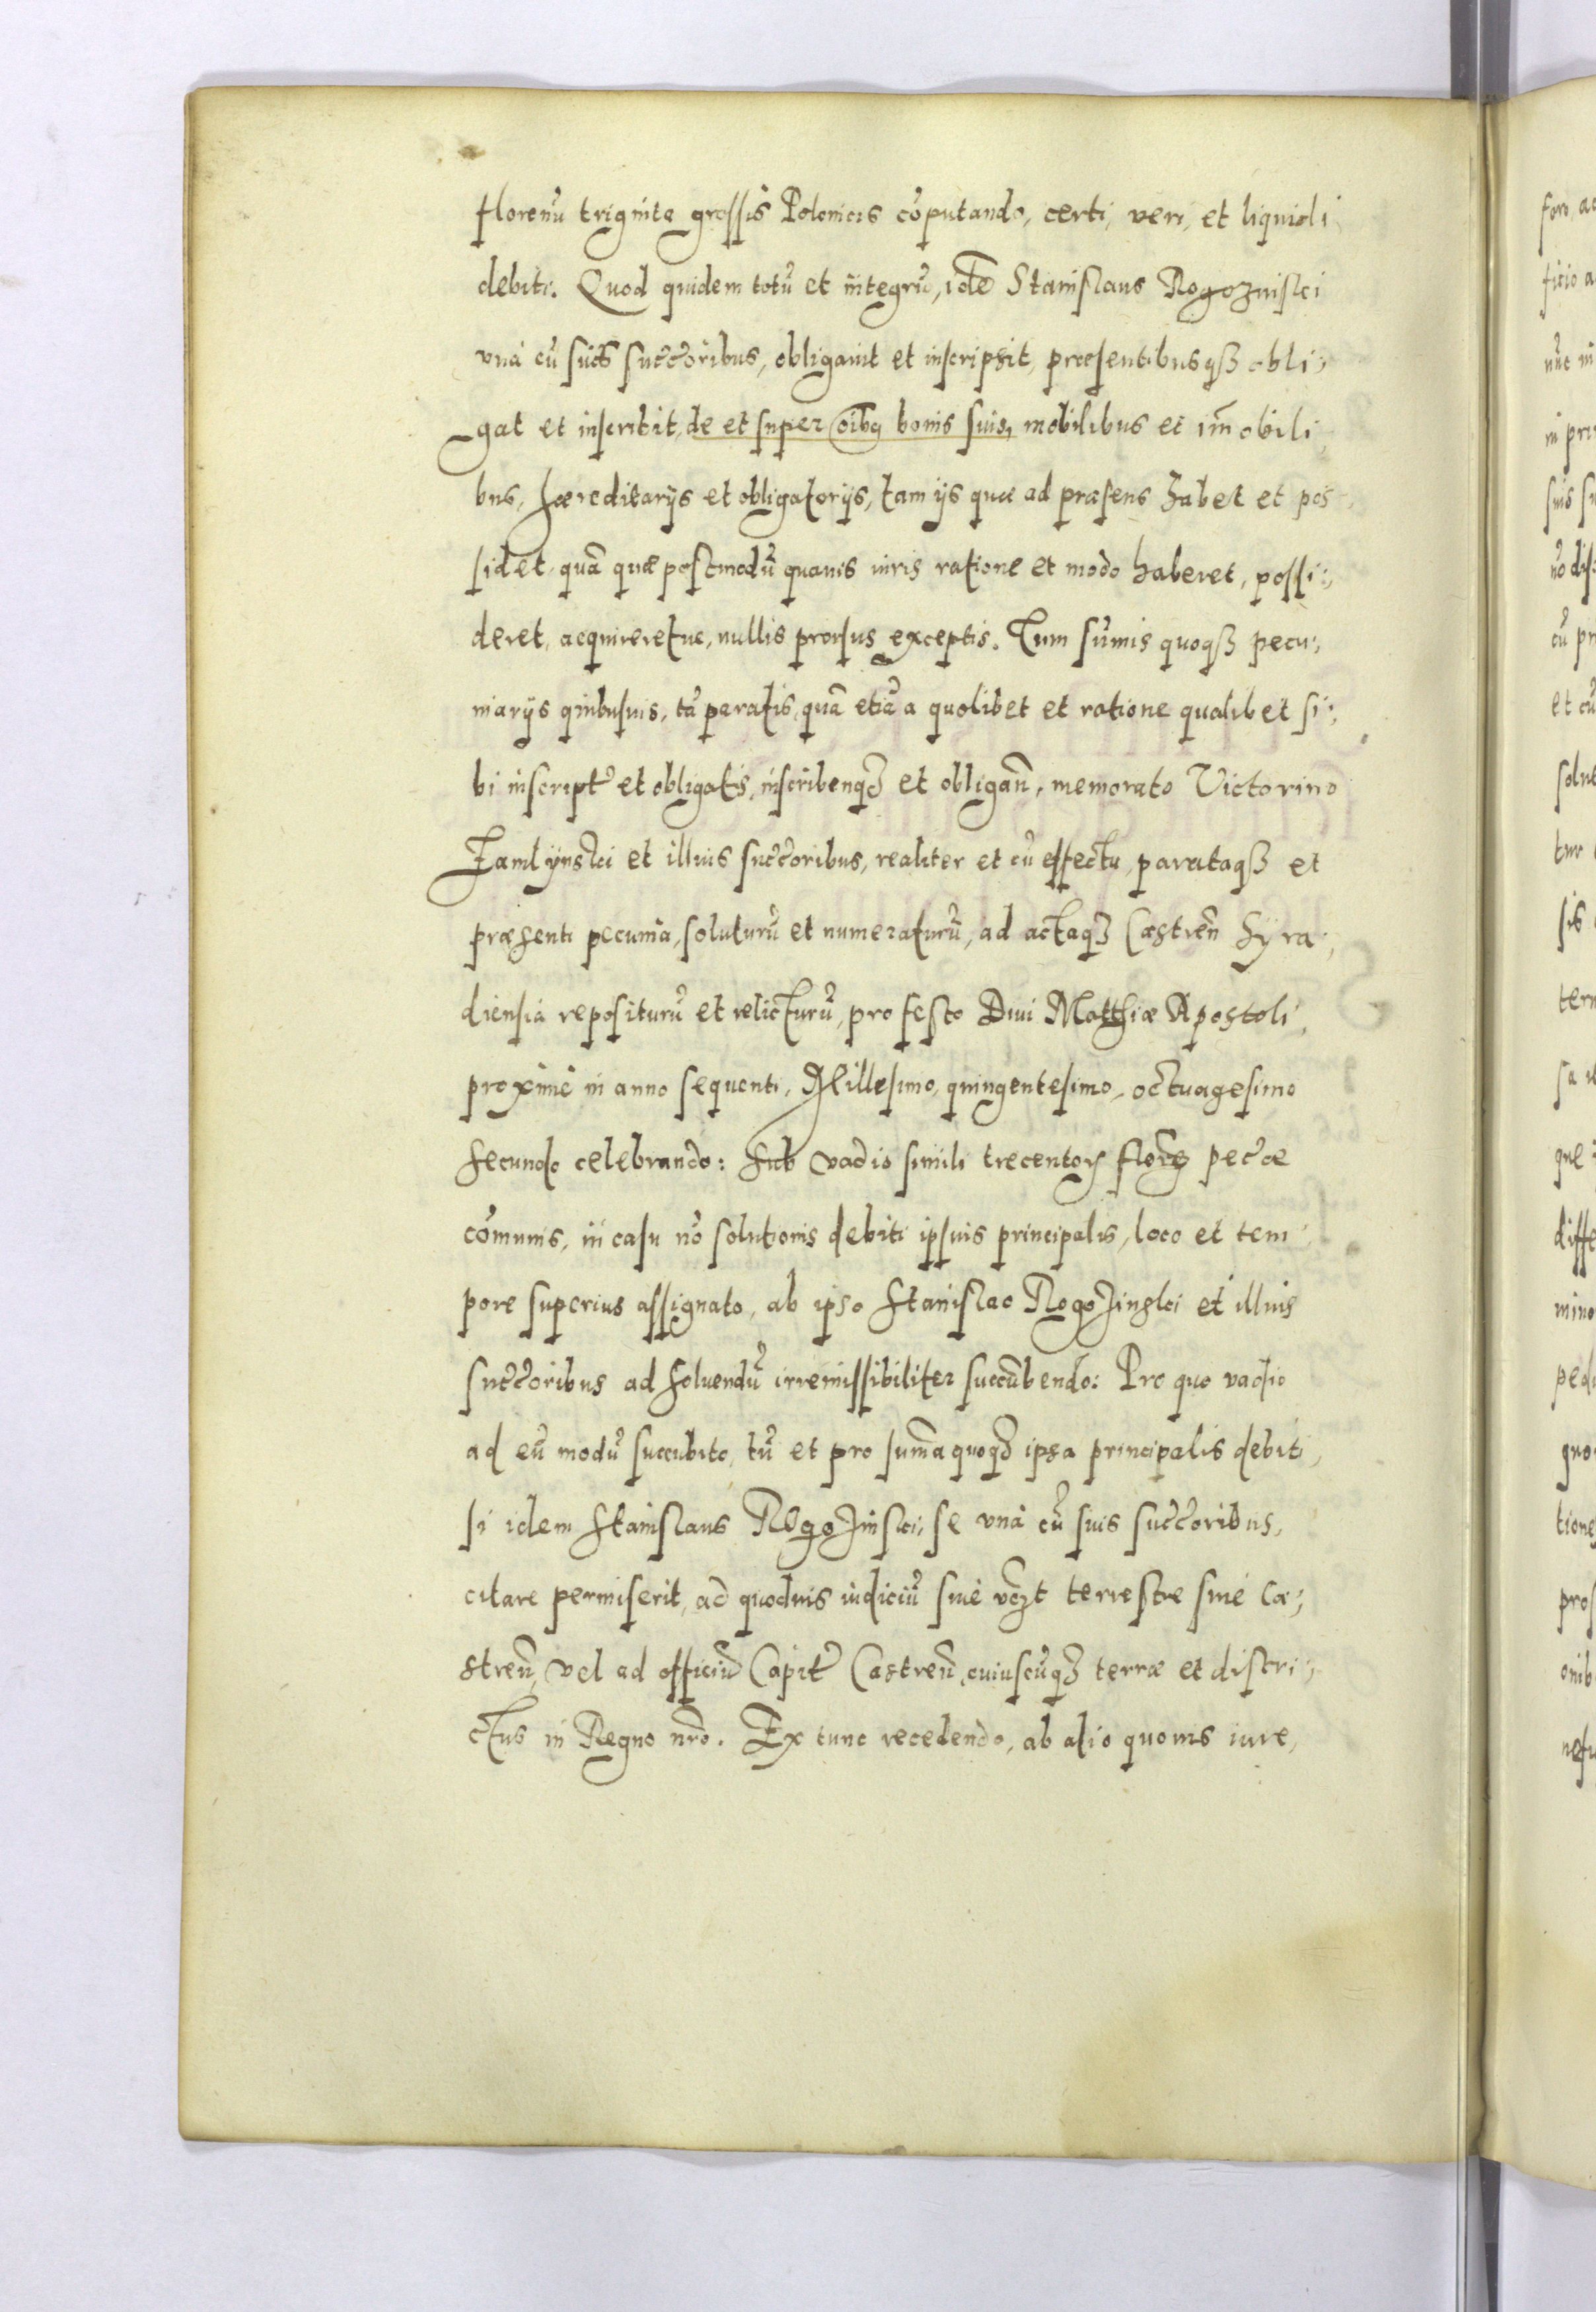 florenū triginta grossis Polonicis cōputando, certi, veri, et liquidi
debiti. Quod quidem totū et integrū, idē Stanislaus Rogozniski
vnà cū suis succ̄oribus, obligauit et inscripsit, præsentibusqȝ obli:
gat et inscribit, de et super oībꝯ bonis suis, mobilibus et im̄obili
bus, hæreditarijs et obligatorijs, tam ijs quæ ad præsens habet et pos
sidet, quā quæ postmodū quouis iuris ratione et modo haberet, possi:
deret, acquireretue, nullis prorsus exceptis. Tum sūmis quoqȝ pecu:
niarijs quibusuis, tā paratis, quā etiā a quolibet et ratione qualibet si:
bi inscript̄ et obligatis, inscribenqȝ et obligan̄, memorato Victorino
Zamlÿnski et illius succ̄oribus, realiter et cū effectu, parataqȝ et
præsenti pecunia, soluturū et numeraturū, ad actaqȝ Castren̄ Syra:
diensia repositurū et relicturū, pro festo Diui Matthiæ Apostoli
proximè in anno sequenti, Millesimo, quingentesimo, octuagesimo
secundo celebrando: sub vadio simili trecentorꝝ florꝫ pec̄æ
cōmunis, in casu nō solutionis debiti ipsius principalis, loco et tem
pore superius assignato, ab ipso Stanislao Rogozinski et illius
succ̄oribus ad soluendū irremissibiliter succūbendo: Pro quo vadio
ad eū modū succubito, tū et pro sum̄a quoqȝ ipsa principalis debiti,
si idem Stanislaus Rogozinski, se vnà cū suis succ̄oribus,
citare permiserit, ad quoduis iudiciū siuè vcȝt terrestre siuè Ca:
stren̄, vel ad officiū Capit̄ Castren̄, cuiuscūqȝ terræ et distri:
ctus in Regno nr̄o. Ex tunc recedendo, ab alio quouis iure,